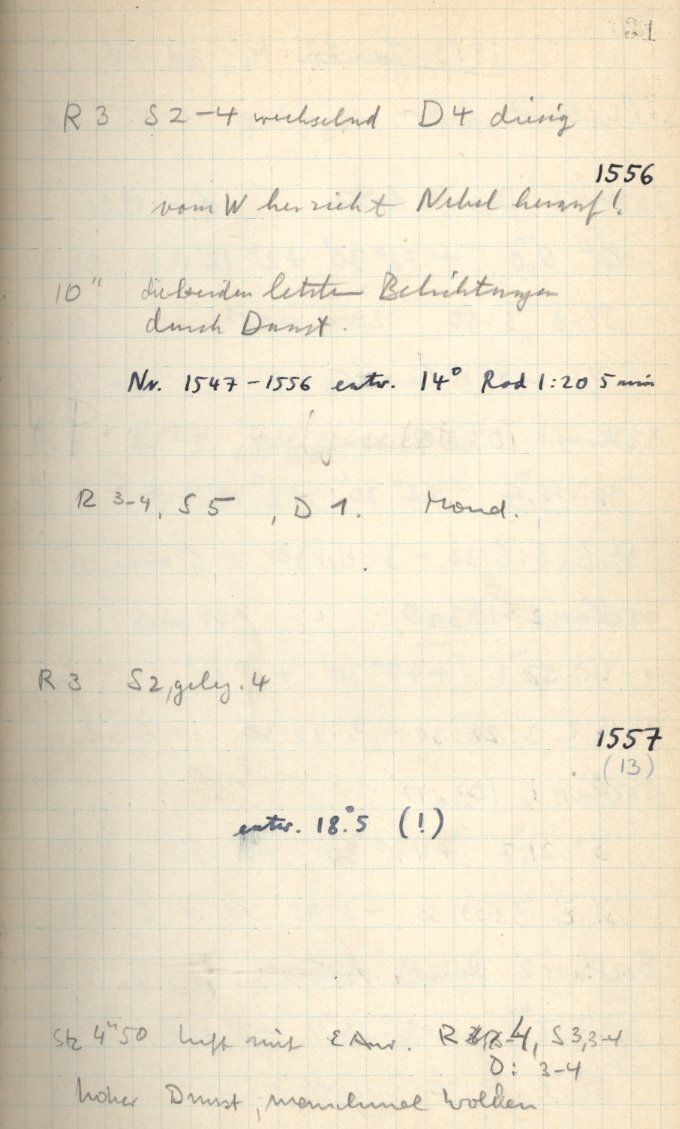 21
R 3 S 2-4 wechselnd D 4 diesig
1556
vom W her zieht Nebel herauf!
10" die beiden letzten Belichtungen
durch Dunst.
Nr. 1547-1556 entw. 14° Rod 1:20 5 min
R 3-4, S 5, D 1. Mond.
R 3 S 2, geleg. 4
1557
(13)
entw. 18°.5 (!)
4ʰ50 Luft mit ε Aur. 4, S 3, 3-4
D: 3-4
hoher Dunst, manchmal Wolken